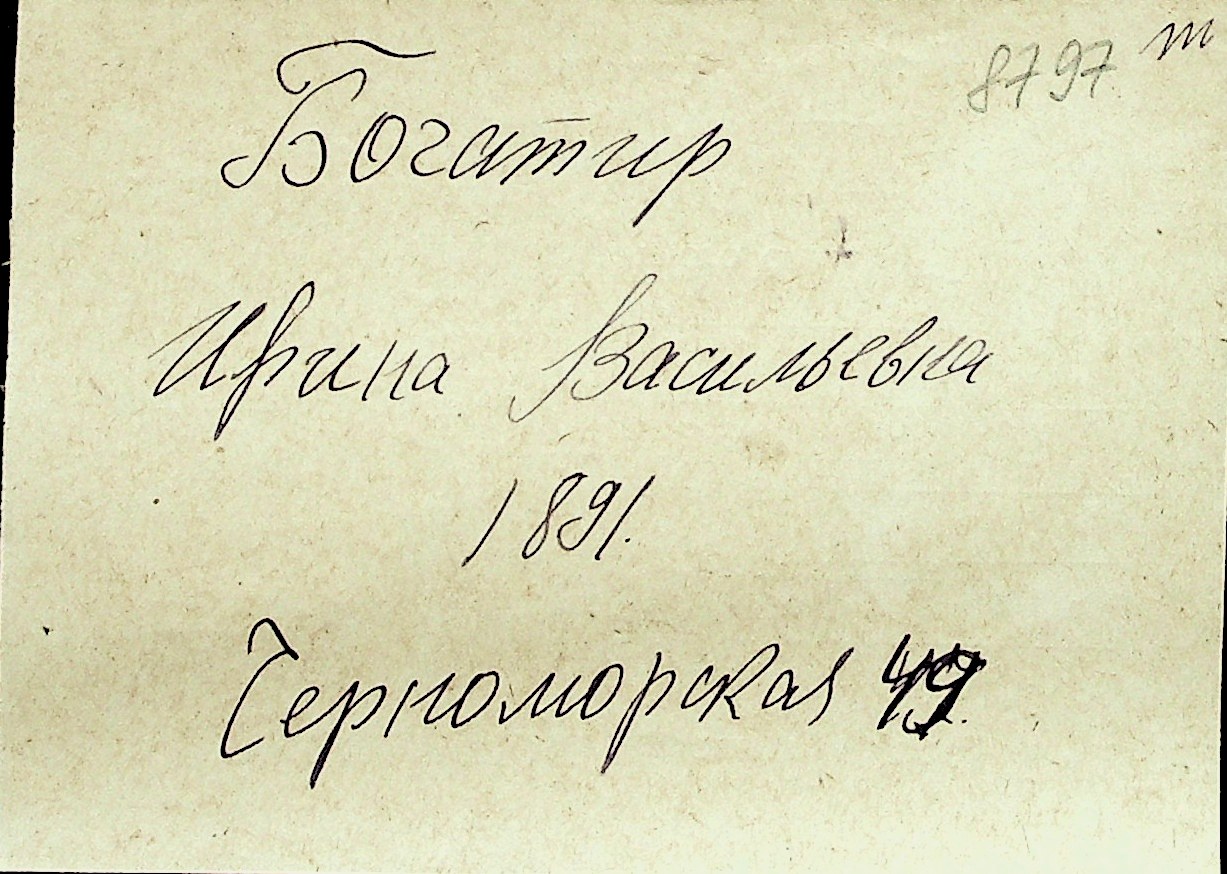 8797 т
Богатир
Ирина Васильевна
1891.
Черноморская 49